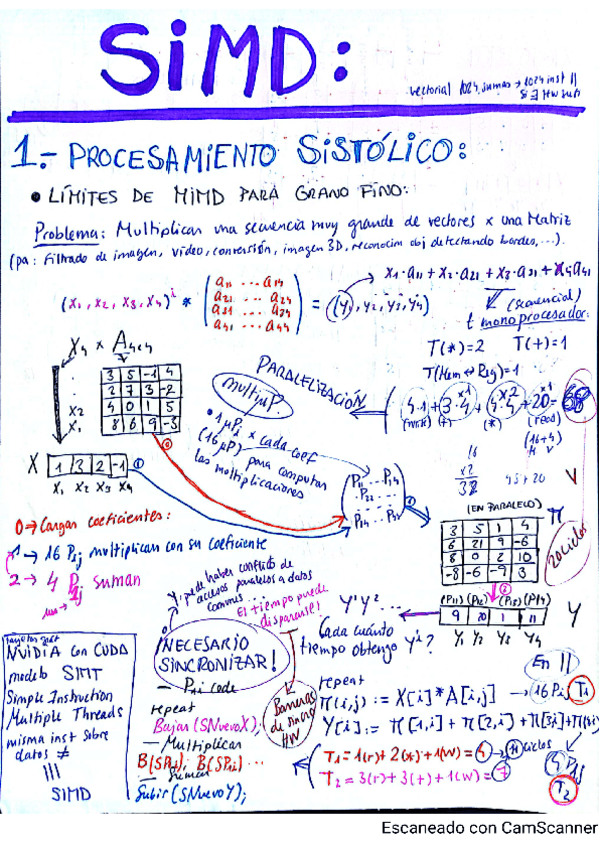 SiMD:
vectorial 1024 sumas → 1024 inst ||
1.- PROCESAMIENTO SISTÓLICO:
• LÍMITES DE MIMD PARA GRANO FINO:
Problema: Multiplicar una secuencia muy grande de vectores x una Matriz
(pa: filtrado de imagen, video, conversión, imagen 3D, reconocim obj detectando bordes, ...).
x1·a11 + x2·a21 + x3·a31 + x4·a41
(x1, x2, x3, x4)^i * (a11 ... a14
a21 ... a24
a31 ... a34
a41 ... a44) = (y1, y2, y3, y4)
(secuencial)
t monoprocesador:
T(*)=2 T(+)=1
T(Mem↔Reg)=1
X4 x A4x4
3 5 -1 4
2 7 3 -2
4 0 1 5
8 6 9 -3
X2
X1
PARALELIZACIÓN
multiμP.
• 1 μPij x cada coef
(16 μP) para computar
las multiplicaciones
(write) (+) (*) (read)
(16+4)
M V
16
x2
32
45+20
X 1 3 2 -1
X1 X2 X3 X4
(EN PARALELO)
3 5 1 4
6 21 9 -6
8 0 2 10
-8 -6 -9 3
π
20 ciclos
0 → Cargar coeficientes:
1 → 16 Pij multiplican con su coeficiente
2 → 4 Pij suman
Y, puede haber conflicto de
accesos paralelos a datos
comunes ...
El tiempo puede
dispararse!
¡NECESARIO
SINCRONIZAR!
Y1 Y2 ...
Cada cuánto
tiempo obtengo Y^i?
9 20 1 11
Y1 Y2 Y3 Y4
Y
En ||
NVIDIA con CUDA
modelo SIMT
Simple Instruction
Multiple Threads
misma inst sobre
datos ≠
|||
SIMD
— Pij code
repeat
Bajar (SNuevoX);
— Multiplicar
B(SPij); B(SPij) ...
— Suman
Subir (SNuevoY);
Barreras
de sincro
HW
repeat
π(i,j) := X[i]*A[i,j] → 16 Pij T1
Y[i] := π[1,i] + π[2,i] + π[3,i] + π[4,i]
T1 = 1(r) + 2(*) + 1(W) = 4 → 11 ciclos
T2 = 3(r) + 3(+) + 1(W) = 7
4 Pij
T2
Escaneado con CamScanner